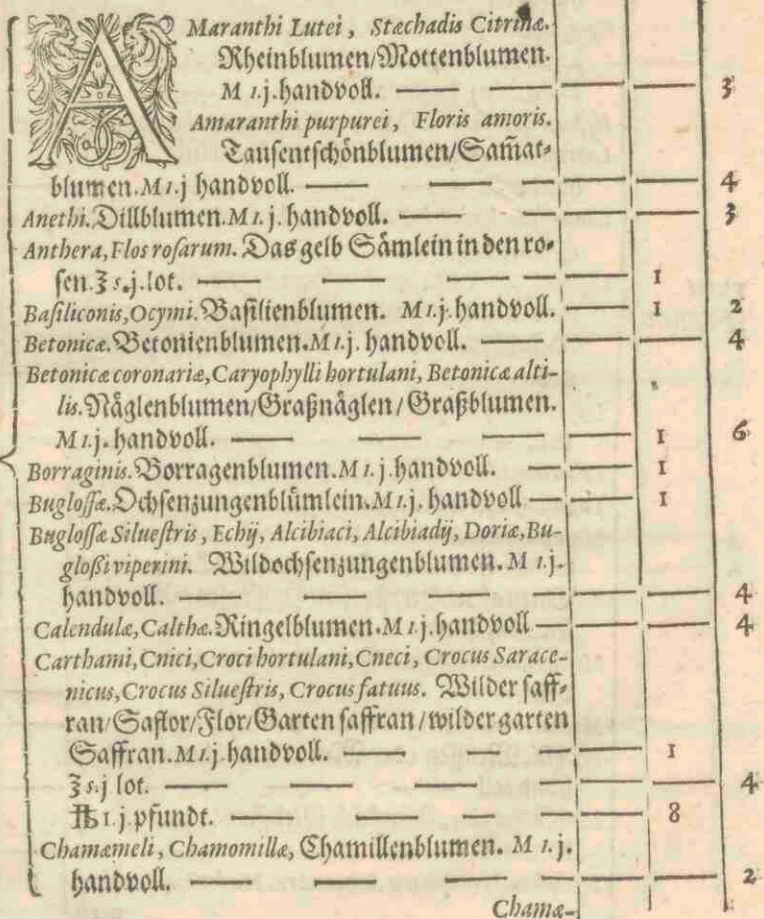 AMaranthi Lutei, Stæchadis Citrinæ.
Rheinblumen/Mottenblumen.
M 1.j.handvoll. — — — — 3
Amaranthi purpurei, Floris amoris.
Tausentschönblumen/Sam̃at-
blumen.M 1.j handvoll. — — — — — 4
Anethi.Dillblumen.M 1.j.handvoll. — — — — 3
Anthera,Flos rosarum. Das gelb Sämlein in den ro-
sen.ʒ s.j.lot. — — — — — 1
Basiliconis,Ocymi.Basilienblumen. M 1.j.handvoll. — — 1 2
Betonicæ.Betonienblumen.M 1.j.handvoll. — — — 4
Betonicæ coronariæ,Caryophylli hortulani, Betonicæ alti-
lis.Näglenblumen/Graßnäglen/Graßblumen.
M 1.j.handvoll. — — — — 1 6
Borraginis.Borragenblumen.M 1.j.handvoll. — — 1
Buglossæ.Ochsenzungenblümlein.M 1.j.handvoll — — 1
Buglossæ Siluestris, Echij, Alcibiaci, Alcibiadij, Doriæ,Bu-
gloßi viperini. Wildochsenzungenblumen.M 1.j.
handvoll. — — — — — — 4
Calendulæ,Calthæ.Ringelblumen.M 1.j.handvoll — — — 4
Carthami,Cnici,Croci hortulani,Cneci, Crocus Sarace-
nicus,Crocus Siluestris, Crocus fatuus. Wilder saff-
ran/Saflor/Flor/Garten saffran/wilder garten
Saffran.M 1.j.handvoll. — — — 1
ʒ s.j lot. — — — — — — 4
℔ 1.j.pfundt. — — — — — 8
Chamæmeli, Chamomillæ, Chamillenblumen. M 1.j.
handvoll. — — — — — — 2
Chamæ-